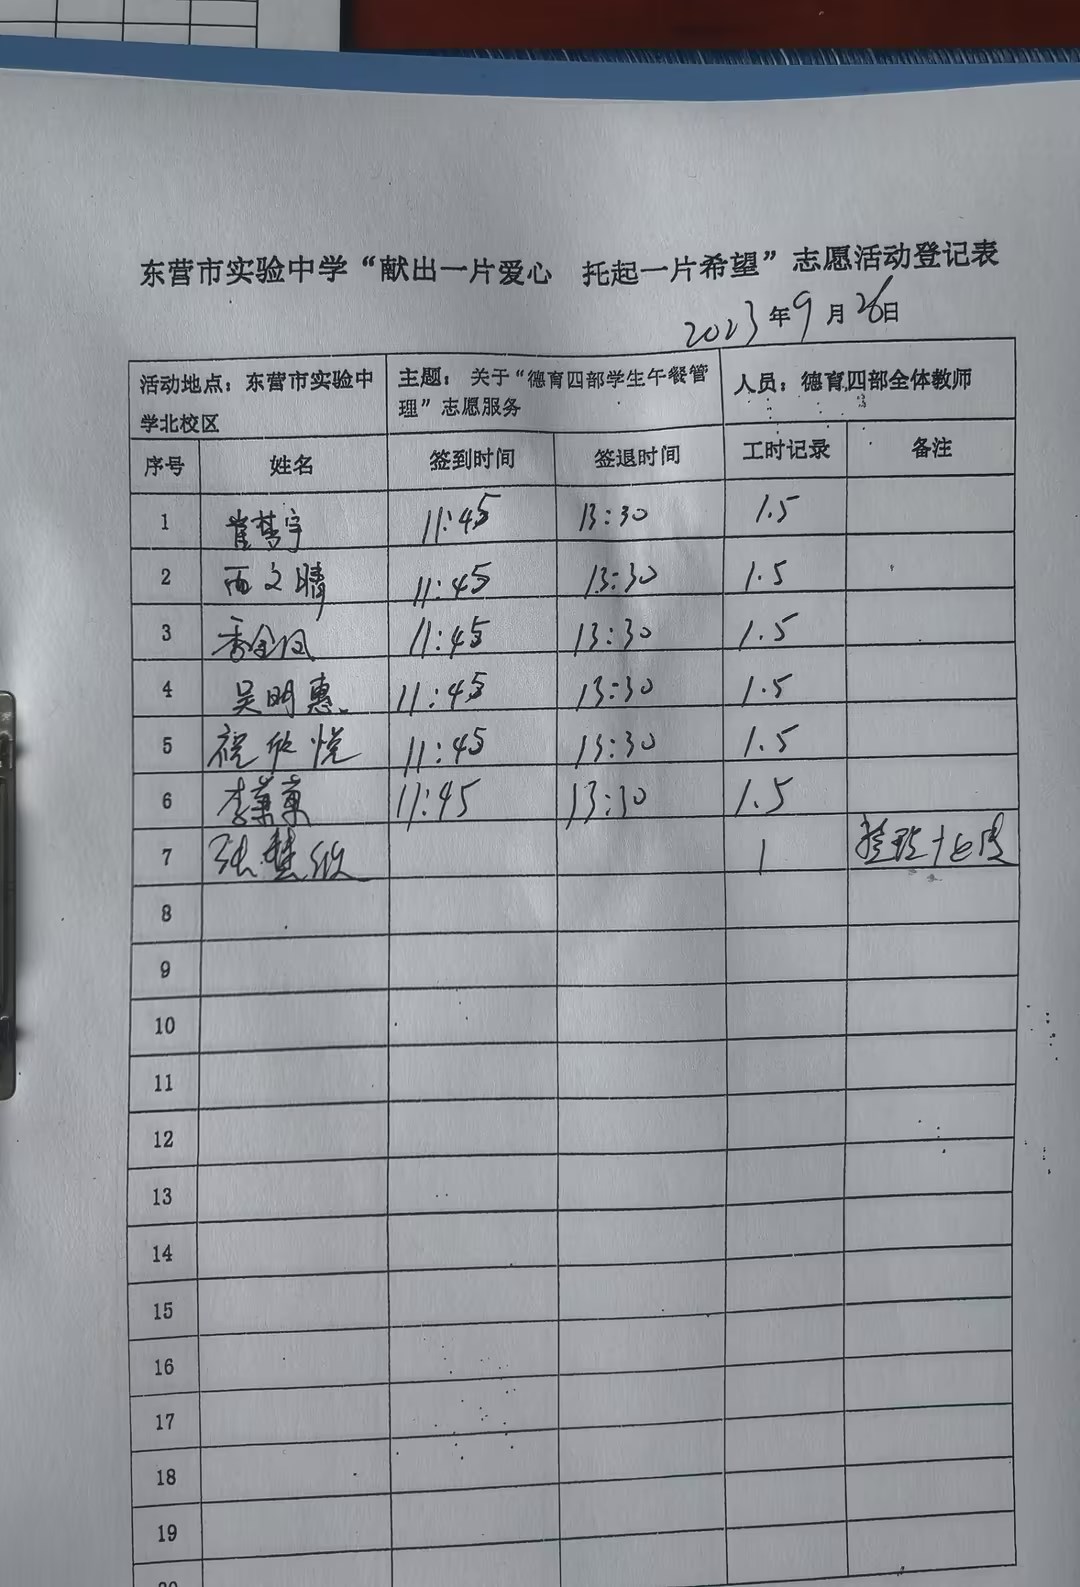 东营市实验中学“献出一片爱心 托起一片希望”志愿活动登记表
2023年9月26日
活动地点：东营市实验中学北校区 主题：关于“德育四部学生午餐管理”志愿服务 人员：德育四部全体教师
序号 姓名 签到时间 签退时间 工时记录 备注
1 崔梦宇 11:45 13:30 1.5
2 西文晴 11:45 13:30 1.5
3 11:45 13:30 1.5
4 吴明惠 11:45 13:30 1.5
5 祝欣悦 11:45 13:30 1.5
6 11:45 13:30 1.5
7 张慧欣 1
8
9
10
11
12
13
14
15
16
17
18
19
20